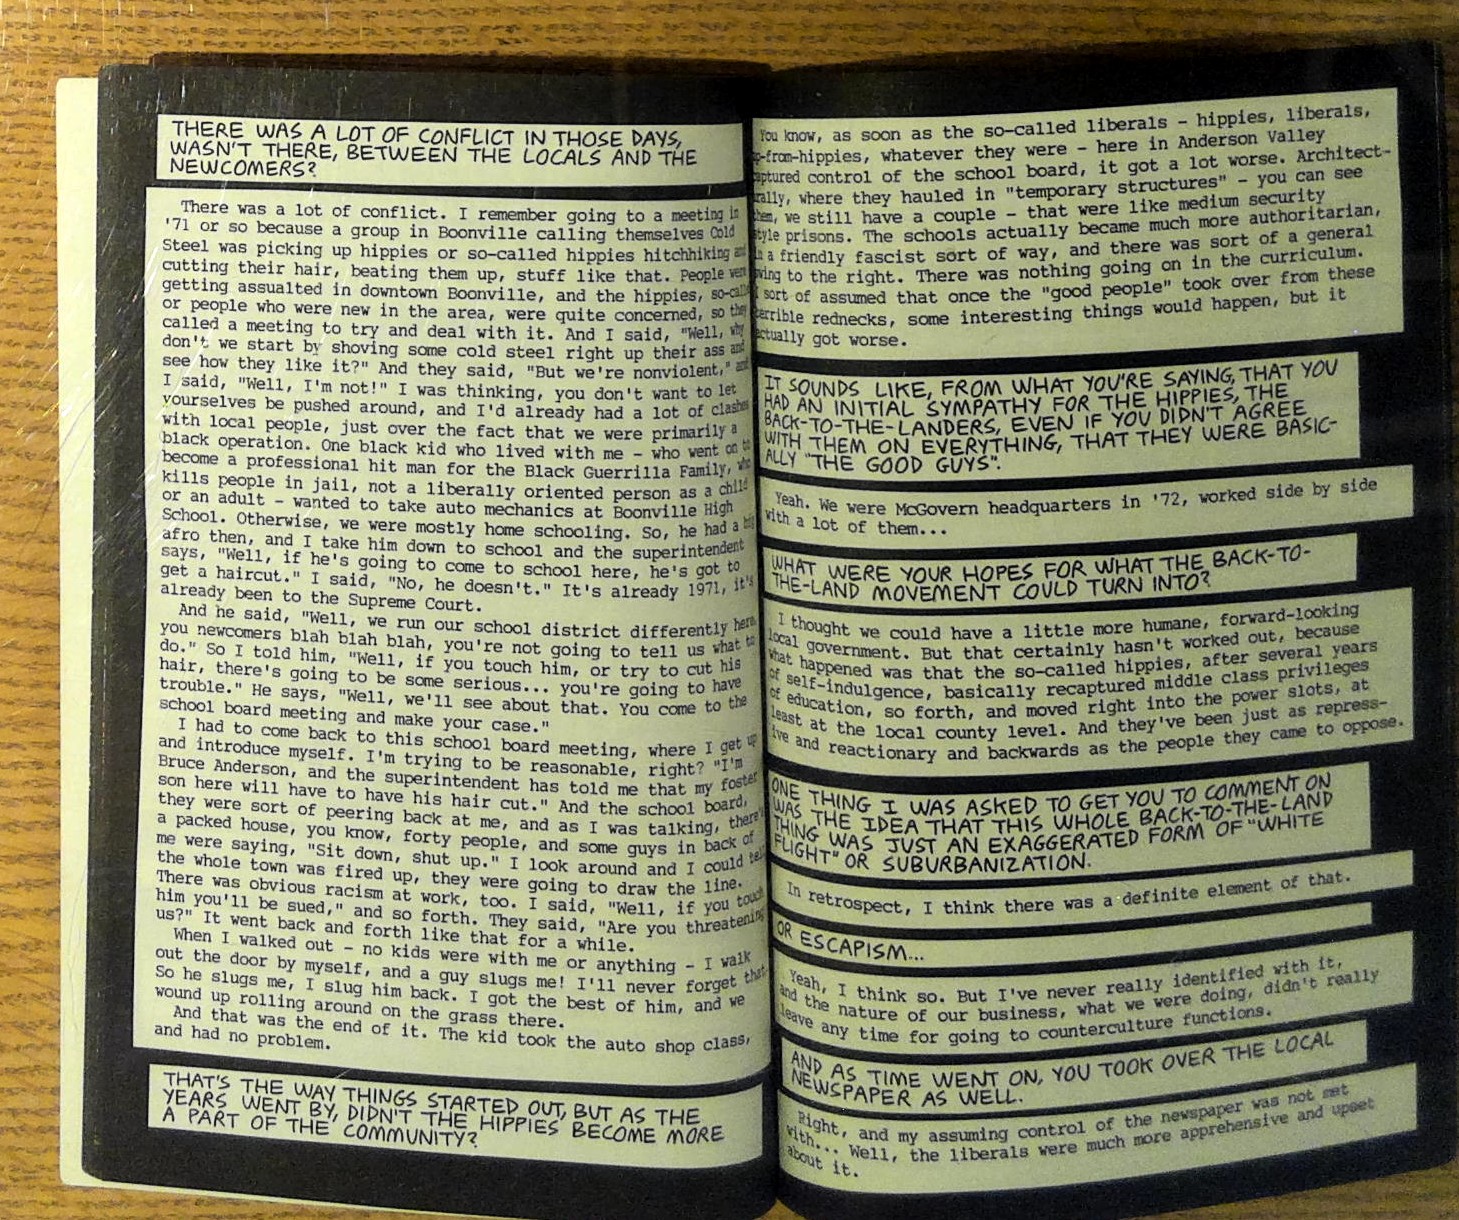 THERE WAS A LOT OF CONFLICT IN THOSE DAYS,
WASN'T THERE, BETWEEN THE LOCALS AND THE
NEWCOMERS?
There was a lot of conflict. I remember going to a meeting in
'71 or so because a group in Boonville calling themselves Cold
Steel was picking up hippies or so-called hippies hitchhiking and
cutting their hair, beating them up, stuff like that. People were
getting assualted in downtown Boonville, and the hippies, so-call
or people who were new in the area, were quite concerned, so they
called a meeting to try and deal with it. And I said, "Well, why
don't we start by shoving some cold steel right up their ass and
see how they like it?" And they said, "But we're nonviolent," and
I said, "Well, I'm not!" I was thinking, you don't want to let
yourselves be pushed around, and I'd already had a lot of clashes
with local people, just over the fact that we were primarily a
black operation. One black kid who lived with me - who went on to
become a professional hit man for the Black Guerrilla Family, who
kills people in jail, not a liberally oriented person as a child
or an adult - wanted to take auto mechanics at Boonville High
School. Otherwise, we were mostly home schooling. So, he had a big
afro then, and I take him down to school and the superintendent
says, "Well, if he's going to come to school here, he's got to
get a haircut." I said, "No, he doesn't." It's already 1971, it's
already been to the Supreme Court.
And he said, "Well, we run our school district differently here,
you newcomers blah blah blah, you're not going to tell us what to
do." So I told him, "Well, if you touch him, or try to cut his
hair, there's going to be some serious... you're going to have
trouble." He says, "Well, we'll see about that. You come to the
school board meeting and make your case."
I had to come back to this school board meeting, where I get up
and introduce myself. I'm trying to be reasonable, right? "I'm
Bruce Anderson, and the superintendent has told me that my foster
son here will have to have his hair cut." And the school board,
they were sort of peering back at me, and as I was talking, there's
a packed house, you know, forty people, and some guys in back of
me were saying, "Sit down, shut up." I look around and I could tell
the whole town was fired up, they were going to draw the line.
There was obvious racism at work, too. I said, "Well, if you touch
him you'll be sued," and so forth. They said, "Are you threatening
us?" It went back and forth like that for a while.
When I walked out - no kids were with me or anything - I walk
out the door by myself, and a guy slugs me! I'll never forget that.
So he slugs me, I slug him back. I got the best of him, and we
wound up rolling around on the grass there.
And that was the end of it. The kid took the auto shop class,
and had no problem.
THAT'S THE WAY THINGS STARTED OUT, BUT AS THE
YEARS WENT BY, DIDN'T THE HIPPIES BECOME MORE
A PART OF THE COMMUNITY?
You know, as soon as the so-called liberals - hippies, liberals,
up-from-hippies, whatever they were - here in Anderson Valley
captured control of the school board, it got a lot worse. Architect-
urally, where they hauled in "temporary structures" - you can see
them, we still have a couple - that were like medium security
style prisons. The schools actually became much more authoritarian,
in a friendly fascist sort of way, and there was sort of a general
swing to the right. There was nothing going on in the curriculum.
I sort of assumed that once the "good people" took over from these
terrible rednecks, some interesting things would happen, but it
actually got worse.
IT SOUNDS LIKE, FROM WHAT YOU'RE SAYING, THAT YOU
HAD AN INITIAL SYMPATHY FOR THE HIPPIES, THE
BACK-TO-THE-LANDERS, EVEN IF YOU DIDN'T AGREE
WITH THEM ON EVERYTHING, THAT THEY WERE BASIC-
ALLY "THE GOOD GUYS".
Yeah. We were McGovern headquarters in '72, worked side by side
with a lot of them...
WHAT WERE YOUR HOPES FOR WHAT THE BACK-TO-
THE-LAND MOVEMENT COULD TURN INTO?
I thought we could have a little more humane, forward-looking
local government. But that certainly hasn't worked out, because
what happened was that the so-called hippies, after several years
of self-indulgence, basically recaptured middle class privileges
of education, so forth, and moved right into the power slots, at
least at the local county level. And they've been just as repress-
ive and reactionary and backwards as the people they came to oppose.
ONE THING I WAS ASKED TO GET YOU TO COMMENT ON
WAS THE IDEA THAT THIS WHOLE BACK-TO-THE-LAND
THING WAS JUST AN EXAGGERATED FORM OF "WHITE
FLIGHT" OR SUBURBANIZATION.
In retrospect, I think there was a definite element of that.
OR ESCAPISM...
Yeah, I think so. But I've never really identified with it,
and the nature of our business, what we were doing, didn't really
leave any time for going to counterculture functions.
AND AS TIME WENT ON, YOU TOOK OVER THE LOCAL
NEWSPAPER AS WELL.
Right, and my assuming control of the newspaper was not met
with... Well, the liberals were much more apprehensive and upset
about it.